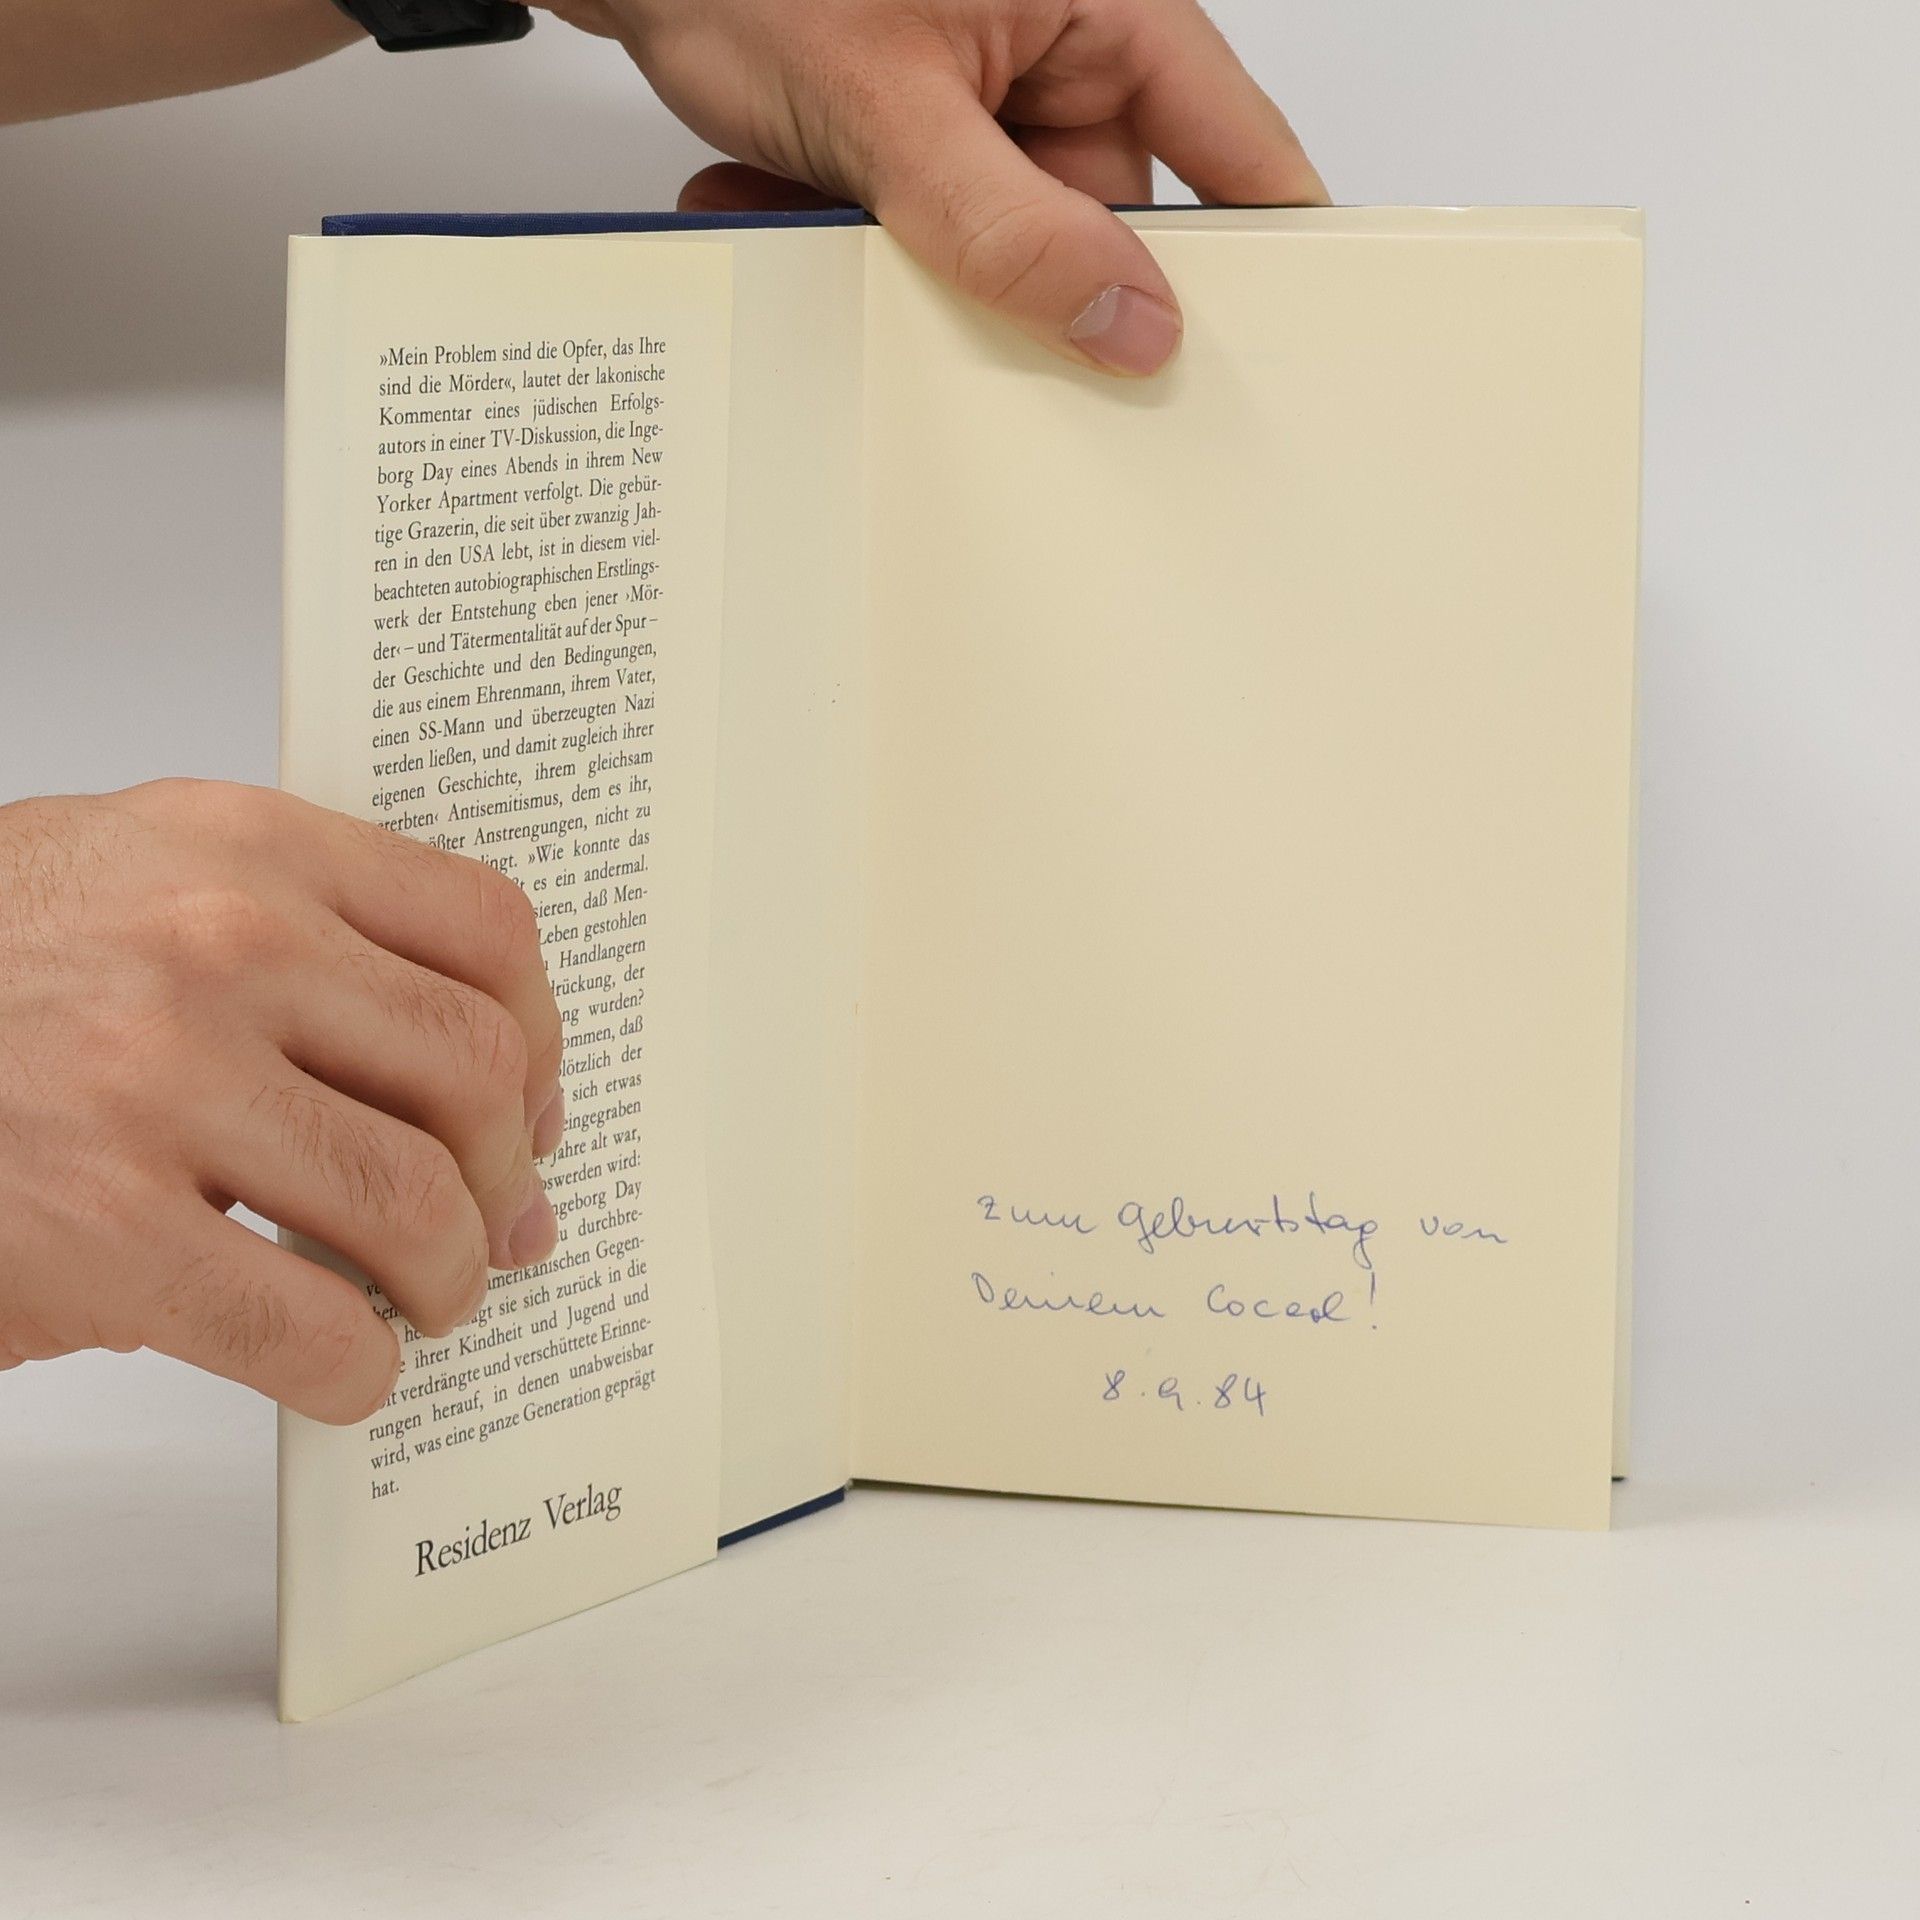 »Mein Problem sind die Opfer, das Ihre
sind die Mörder«, lautet der lakonische
Kommentar eines jüdischen Erfolgs-
autors in einer TV-Diskussion, die Inge-
borg Day eines Abends in ihrem New
Yorker Apartment verfolgt. Die gebür-
tige Grazerin, die seit über zwanzig Jah-
ren in den USA lebt, ist in diesem viel-
beachteten autobiographischen Erstlings-
werk der Entstehung eben jener ›Mör-
der‹ – und Tätermentalität auf der Spur –
der Geschichte und den Bedingungen,
die aus einem Ehrenmann, ihrem Vater,
einen SS-Mann und überzeugten Nazi
werden ließen, und damit zugleich ihrer
eigenen Geschichte, ihrem gleichsam
ererbten‹ Antisemitismus, dem es ihr,
ößter Anstrengungen, nicht zu
lingt. »Wie konnte das
es ein andermal.
sieren, daß Men-
Leben gestohlen
Handlangern
drückung, der
ng wurden?
ommen, daß
lötzlich der
sich etwas
eingegraben
Jahre alt war,
oswerden wird:
ngeborg Day
u durchbre-
merikanischen Gegen-
agt sie sich zurück in die
ihrer Kindheit und Jugend und
verdrängte und verschüttete Erinne-
rungen herauf, in denen unabweisbar
wird, was eine ganze Generation geprägt
hat.
Residenz Verlag
Zum Geburtstag von
Deinem
8.9.84